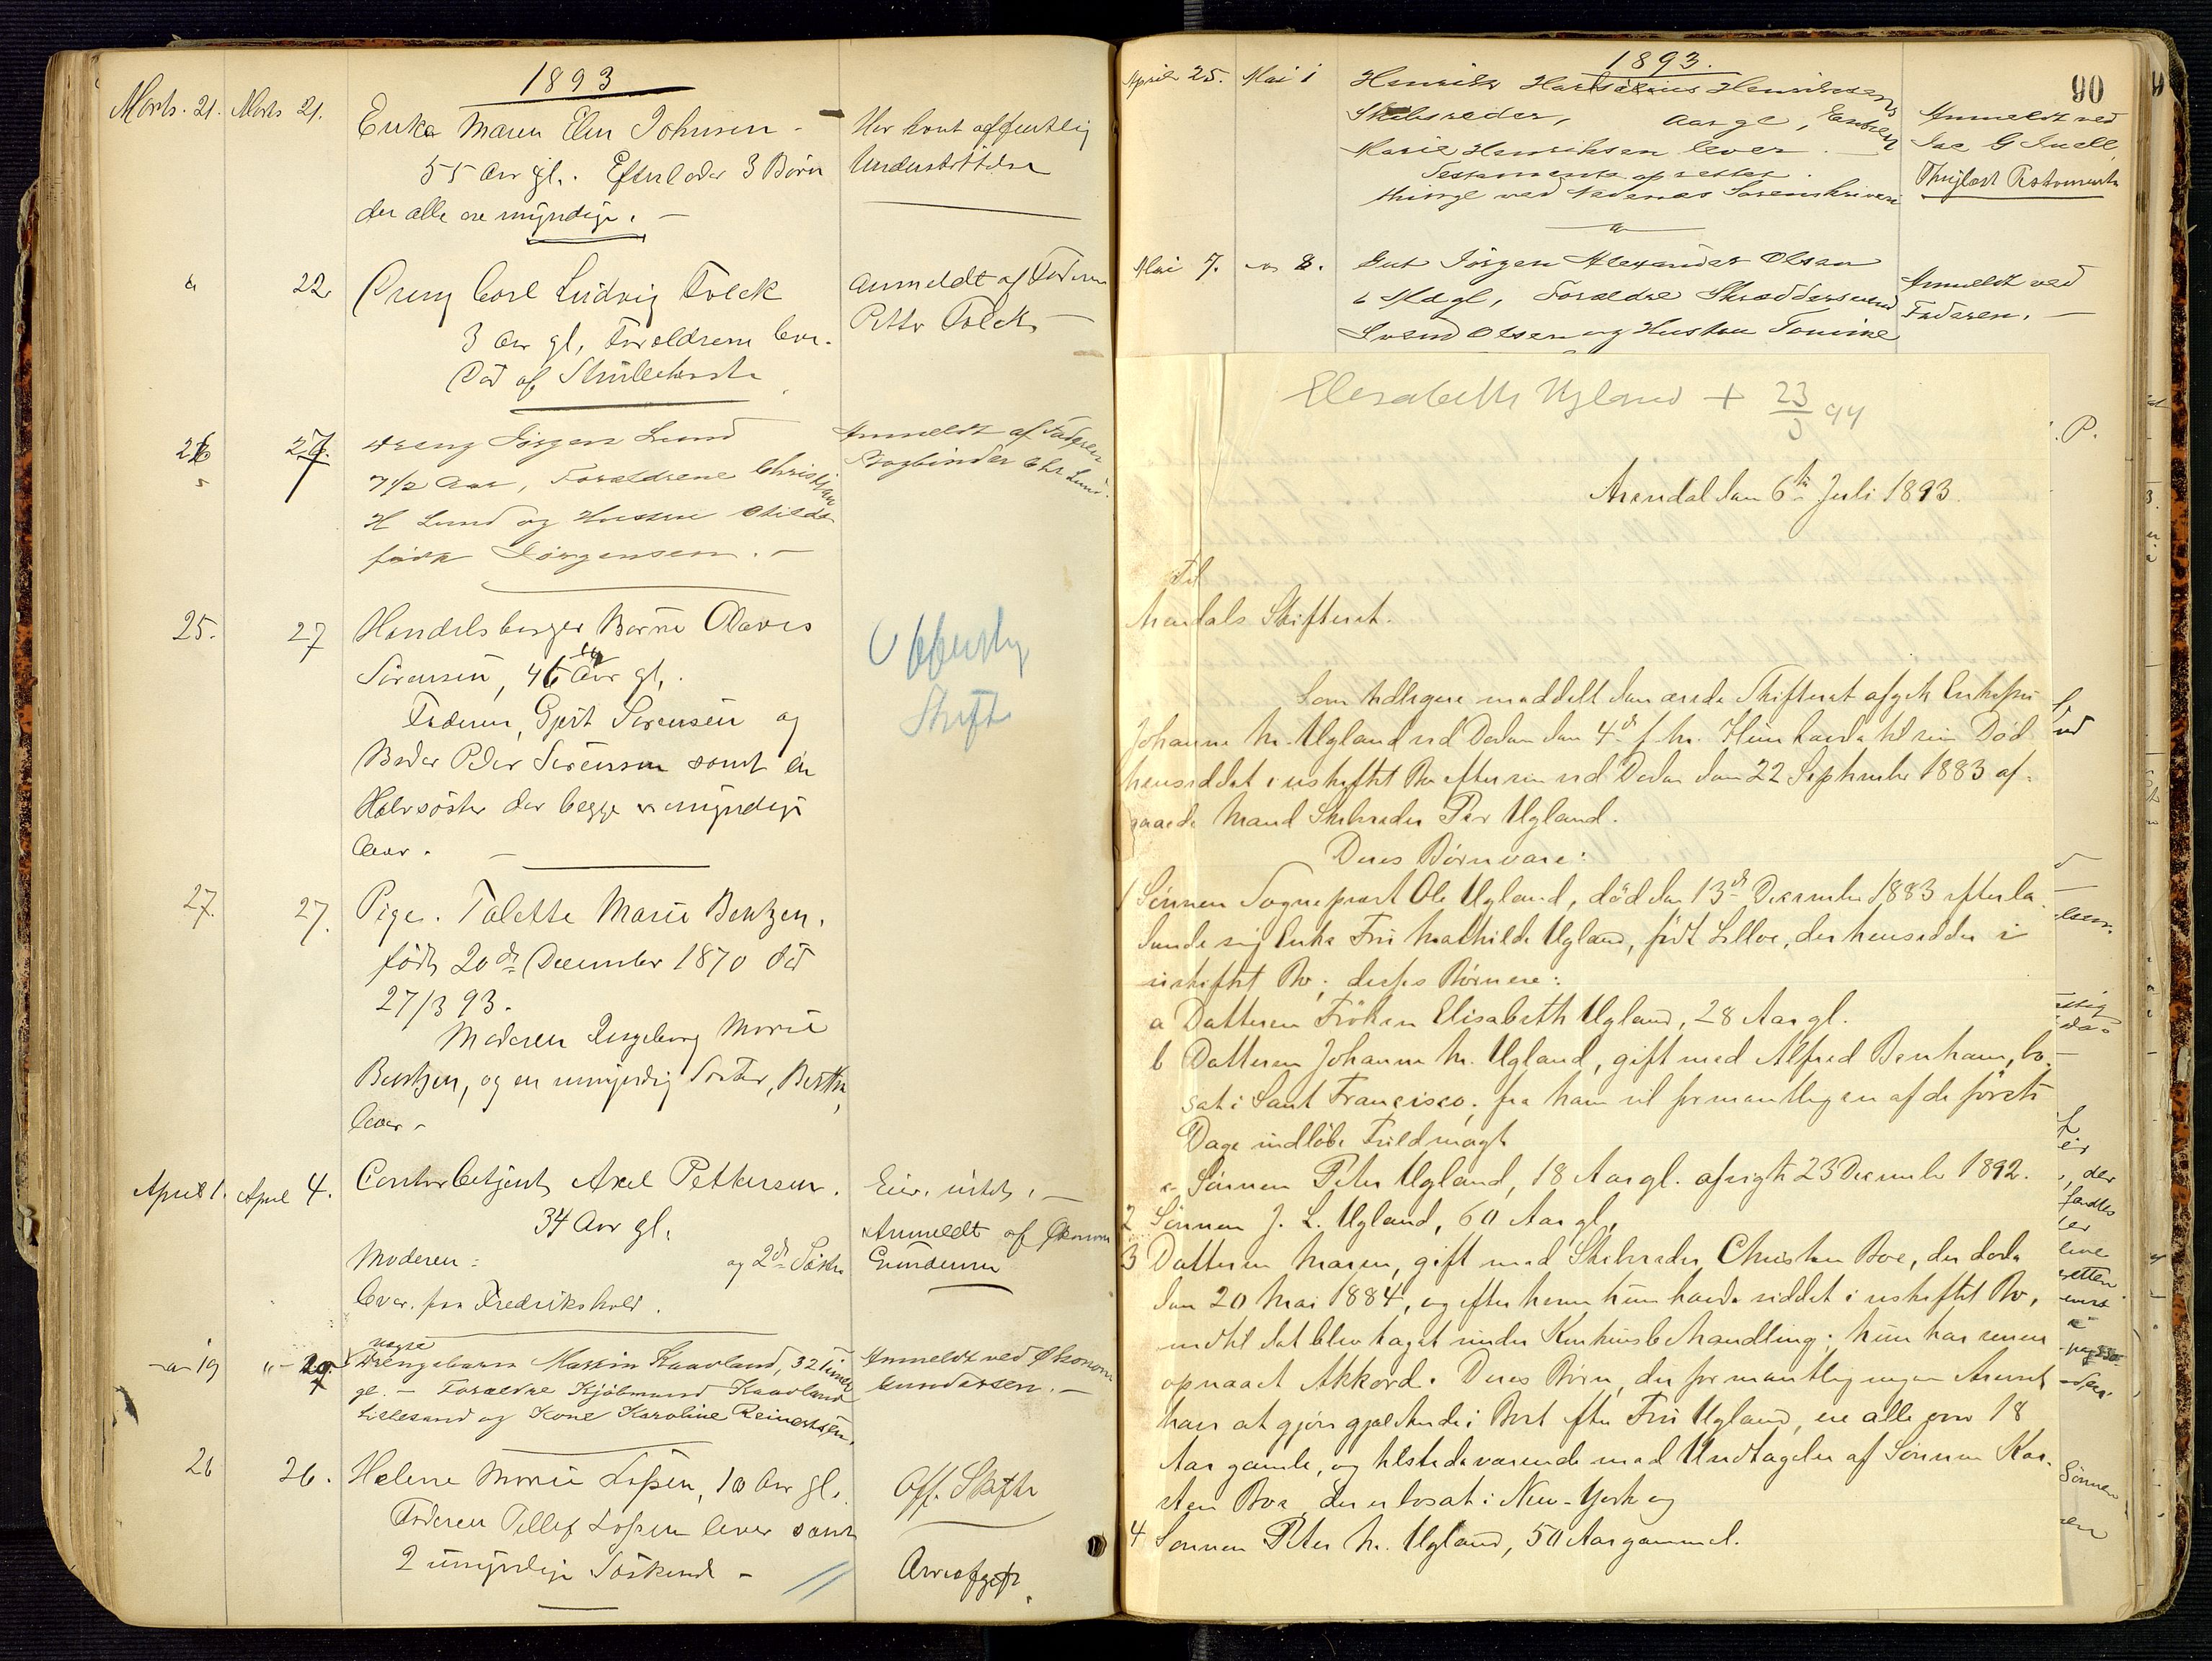 1893
Marts. 21. Marts 21.
Enke Maren Elen Johnsen -
55 Aar gl. Efterlader 3 Børn
der alle ere myndige. -
Har havt offentlig
Understøttelse
22
Dreng Carl Ludvig Folck
3 Aar gl, Forældrene lever.
Død af
Anmeldt af Faderen
Petter Folck -
26 27.
Dreng Jörgen Lund
7 1/2 Aar, Forældrene Christian
H Lund og Hustru Otilde
födt Jörgensen. -
Anmeldt af Faderen
Bogbinder Chr Lund.
25. 27
Handelsborger Börre Olaves
Sörensen, 46 Aar gl,
Faderen, Gjert Sörensen og
Broder Peder Sörensen samt en
Halvsöster der begge er myndige
lever. -
Offentlig
Skifte
27. 27.
Pige. Talette Marie Bentzen,
født 20de December 1870 död
27/3 93.
Moderen Ingeborg Marie
Bentzen, og en umyndig Søster, Bertha,
lever -
April 1. April 4.
Contorbetjent Axel Pettersen.
34 Aar gl.
Moderen: og 2de Søstre
lever. paa Fredrikshald.
Eier intet. -
Anmeldt af Økonom
Gundersen
19 20.
uægte
Drengebarn Martin Kaavland, 32 Timer
gl. - Forældre Kjölmund Kaavland
Lillesand og Kone Karoline Reinertsen.
Anmeldt ved Økonom
Gundersen. -
26 26.
Helene Marie Lossen, 10 Aar gl.
Faderen Tellef Lossen lever samt
2 umyndige Söskende -
Off. Skifte
Arveafgift
90
1893.
April 25. Mai 1
Henrik Henriksen
Skibsreder, Aar gl, Enken
Marie Henriksen lever. -
Testamente oprettet.
thingl ved Nedenæs Sorenskriveri
Anmeldt ved
Thinglæst Testamente
Mai 7. 8.
Gut Jörgen Alexander Olsen
6 Md gl, Forældre Skræddersvend
Svend Olsen og Hustru Tomine
Anmeldt ved
Faderen. -
Elesabeth Ugland + 23/5 94
Arendal den 6te Juli 1893.
Til
Arendals Skifteret.
Som tidligere meddelt den ærede Skifteret afgik Enkefru
Johanne M. Ugland ved Døden den 4de f. M. Hun havde til sin Død
hensiddet i uskiftet Bo efter sin ved Døden den 22 September 1883 af-
gaaede Mand Skibsreder Per Ugland.
Deres Børn vare:
1 Sönnen Sogneprest Ole Ugland, död den 13de December 1883 efterla-
dende sig Enke Fru Mathilde Ugland, födt Lilloe, der hensidder i
uskiftet Bo; deres Börn ere:
a Datteren Fröken Elisabeth Ugland, 28 Aar gl.
b Datteren Johanne M. Ugland, gift med Alfred Benham, bo-
sat i Sant Francisco; fra ham vil formentligen af de förste
Dage indløbe Fuldmagt
c Sönnen Peter Ugland, 18 Aar gl. afvigte 23 December 1892.
2 Sönnen J. L. Ugland, 60 Aar gl,
3 Datteren Maren, gift med Skibsreder Christen Boe, der døde
den 20 Mai 1884, og efter hvem hun havde siddet i uskiftet Bo,
indtil det blev taget under Konkursbehandling; hun har senere
opnaaet Akkord. Deres Börn, der formentligen ingen Arveret
har at gjøre gjældende i Boet efter Fru Ugland, ere alle over 18
Aar gamle, og tilstedeværende med Undtagelse af Sönnen Kar-
sten Boe, der er bosat i New-York og
4 Sønnen Peter M. Ugland, 50 Aar gammel.